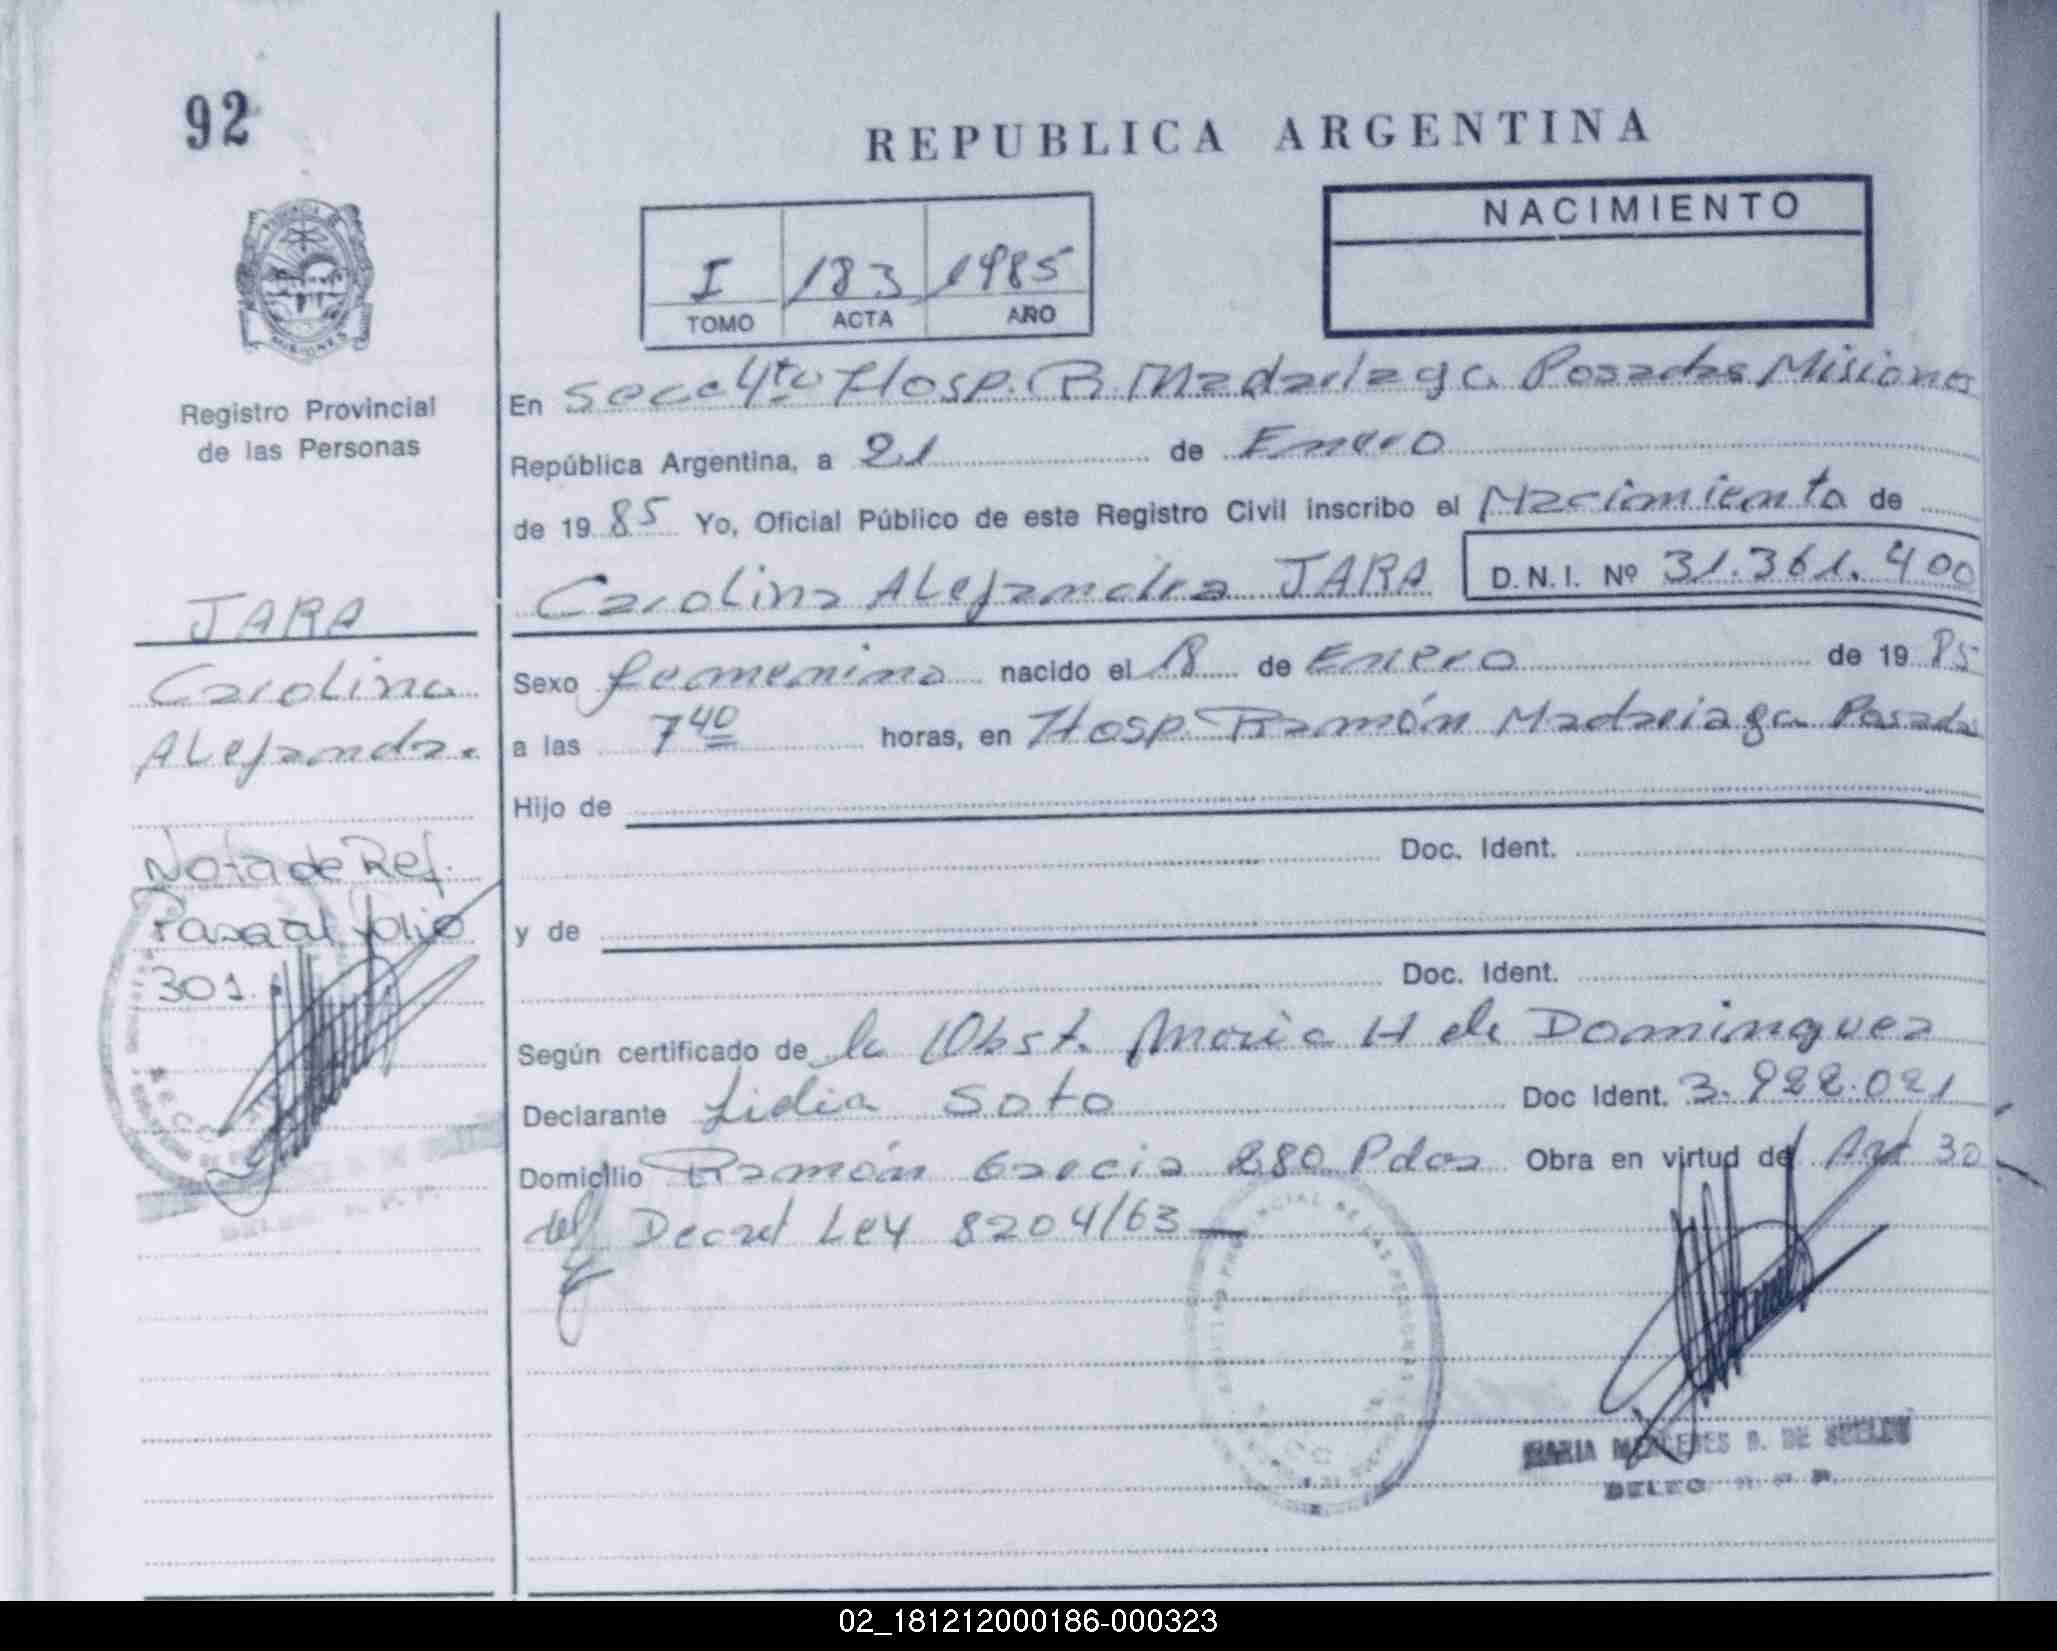 92
REPUBLICA ARGENTINA
NACIMIENTO
I 183 1985
TOMO ACTA AÑO
MISIONES
Registro Provincial
de las Personas
En Secc 4ta Hosp. R. Madariaga Posadas Misiones
República Argentina, a 21 de Enero
de 1985 Yo, Oficial Público de este Registro Civil inscribo el Nacimiento de
Carolina Alejandra JARA D.N.I. Nº 31.361.400
JARA
Carolina
Alejandra
Sexo femenino nacido el 18 de Enero de 1985
a las 7 40 horas, en Hosp. Ramón Madariaga Posadas
Hijo de
Doc. Ident.
y de
Doc. Ident.
Nota de Ref.
Pasa al folio
301.
Según certificado de la Obst. Maria H de Dominguez
Declarante Lidia Soto Doc Ident. 3.922.021
Domicilio Ramón Garcia 280 Pdas Obra en virtud del Art 30
del Decret Ley 8204/63
MARIA MERCEDES B. DE
DELEG
02_181212000186-000323